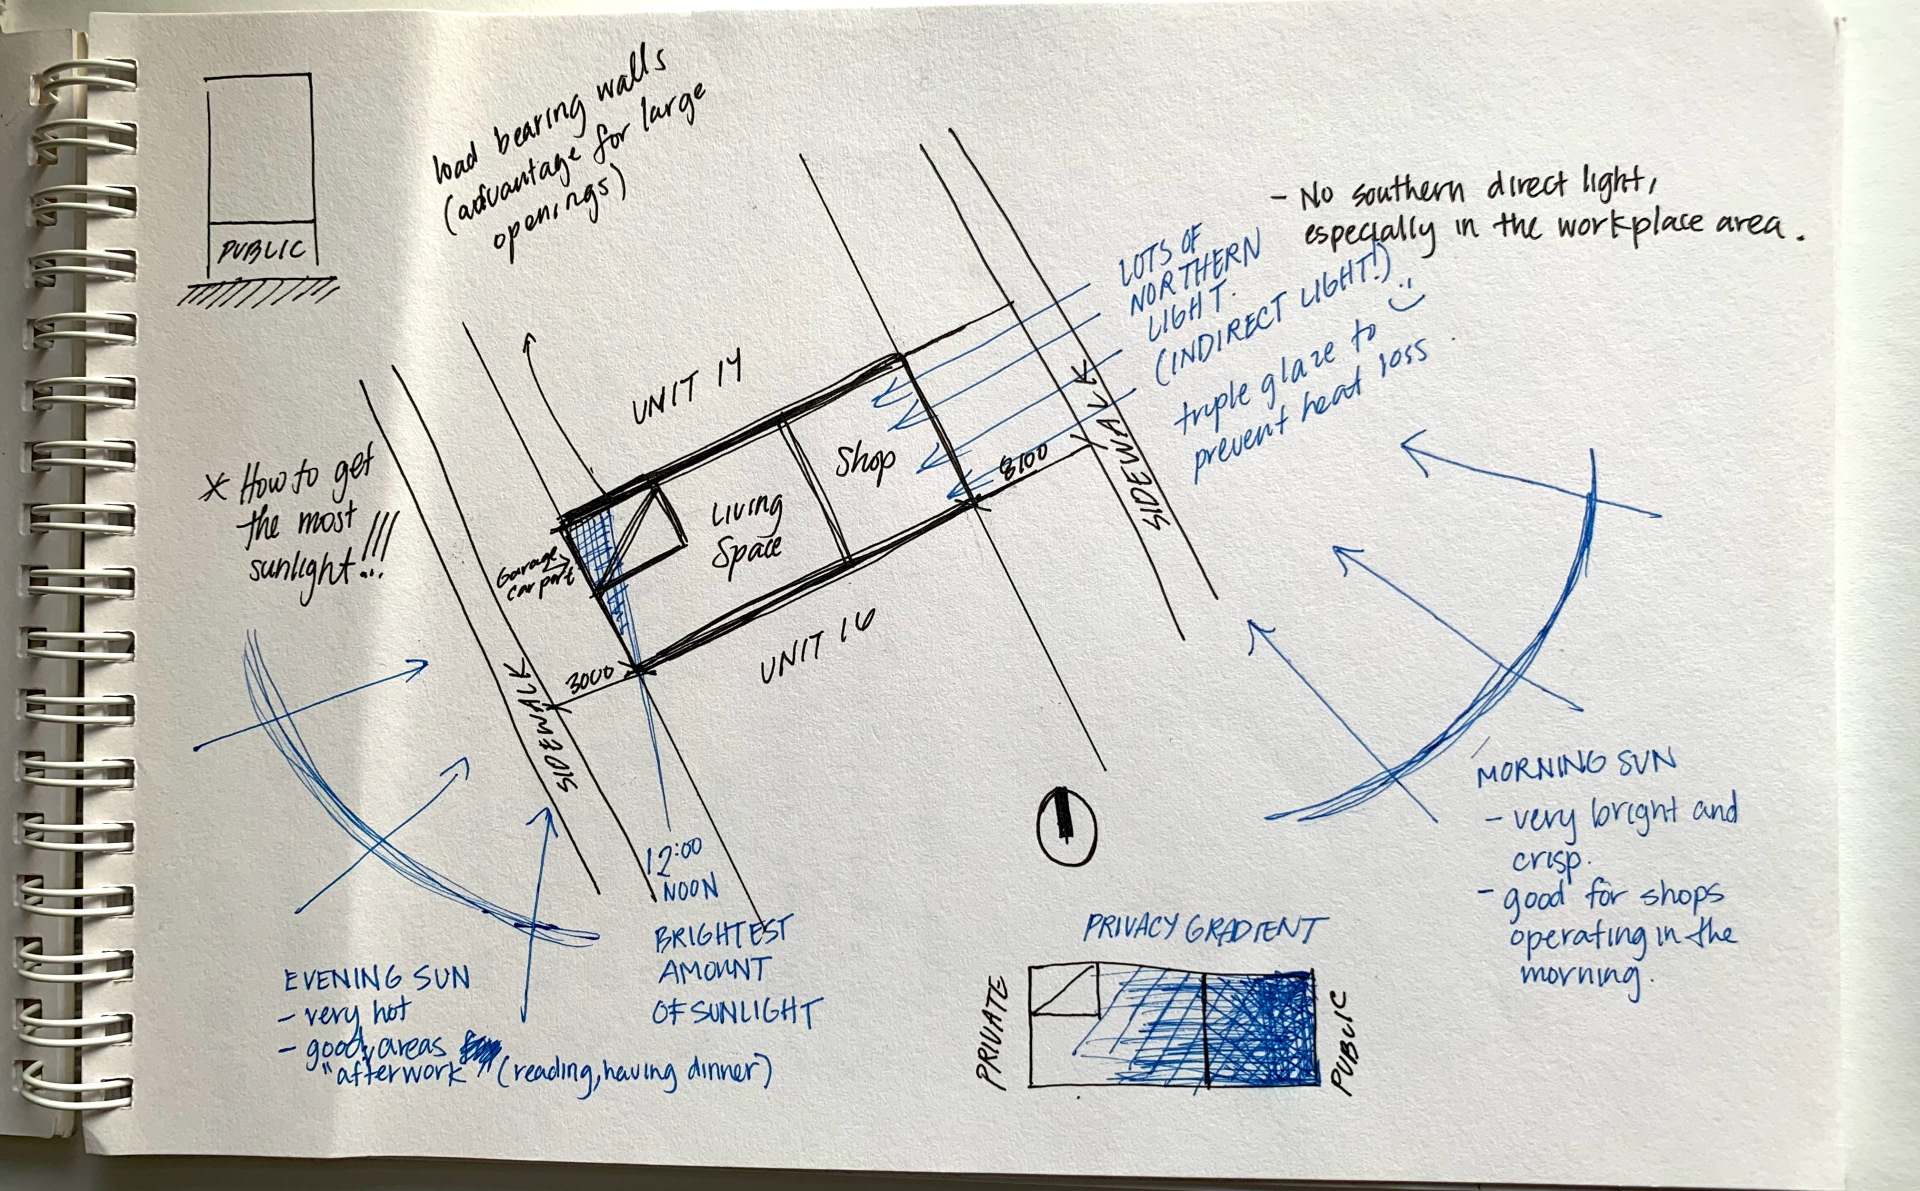 PUBLIC
load bearing walls
(advantage for large
openings)
- No southern direct light,
especially in the workplace area.
LOTS OF
NORTHERN
LIGHT.
(INDIRECT LIGHT!)
triple glaze to
prevent heat loss
UNIT 14
Shop
8100
SIDEWALK
* How to get
the most
sunlight!!!
Living
Space
Garage
car port
UNIT 16
3000
SIDEWALK
12:00
NOON
BRIGHTEST
AMOUNT
OF SUNLIGHT
MORNING SUN
- very bright and
crisp.
- good for shops
operating in the
morning.
EVENING SUN
- very hot
- good areas
"afterwork" (reading, having dinner)
PRIVACY GRADIENT
PRIVATE
PUBLIC